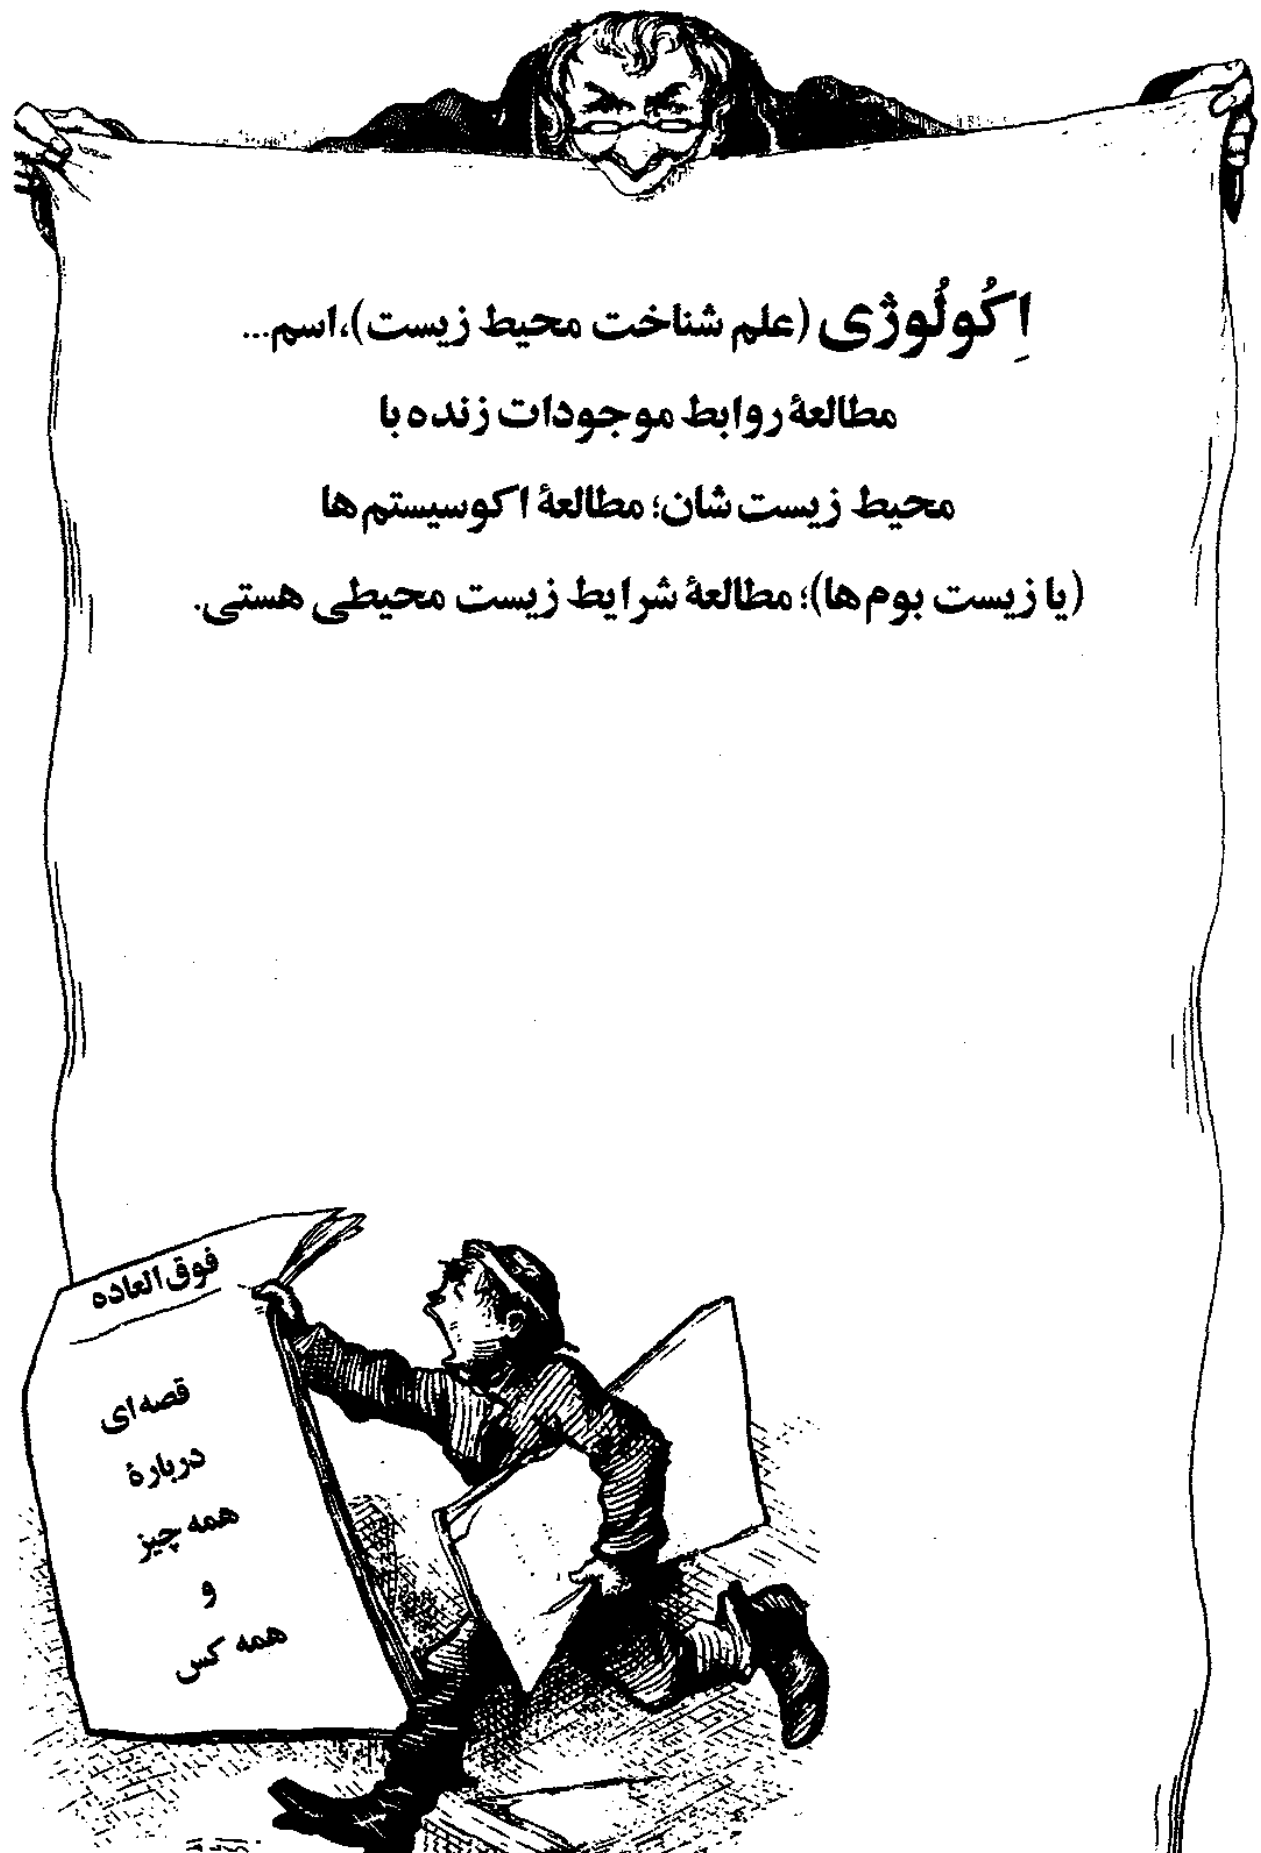 اِکُولُوژی (علم شناخت محیط زیست)،اسم...
مطالعهٔ روابط موجودات زنده با
محیط زیست شان؛ مطالعهٔ اکوسیستم ها
(یا زیست بوم ها)؛ مطالعهٔ شرایط زیست محیطی هستی.
فوق العاده
قصه ای
دربارهٔ
همه چیز
و
همه کس